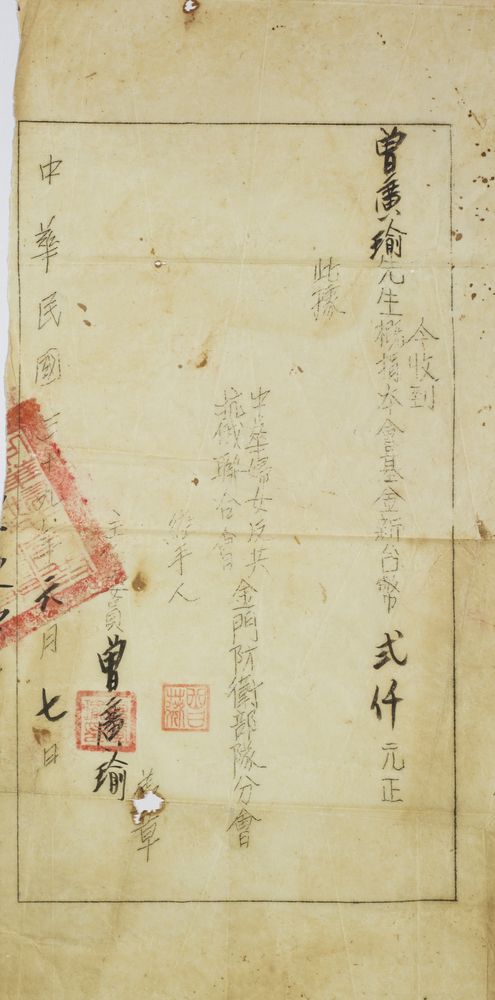 今收到
曾廣瑜先生概捐本會基金新台幣弍仟元正
此據
中華婦女反共抗俄聯合會金門防衛部隊分會
經手人
主 委員 曾廣瑜 蓋章
中華民國三十九年六月七日